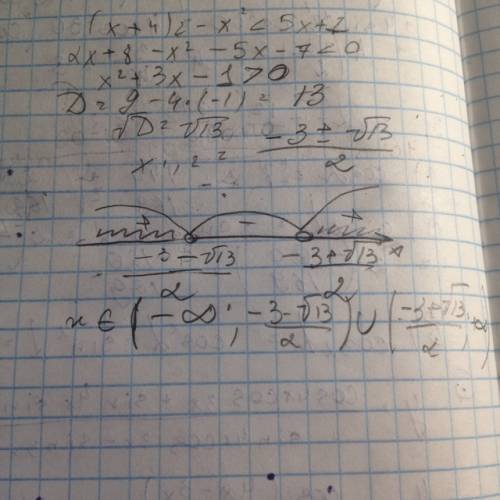 (x+4)2 - x² < 5x+7
2x+8 - x² - 5x - 7 < 0
x² + 3x - 1 > 0
D = 9 - 4·(-1) = 13
√D = √13
x₁,₂ = (-3 ± √13)/2
+ - + x
(-3-√13)/2 (-3+√13)/2
x ∈ (-∞; (-3-√13)/2) ∪ ((-3+√13)/2; +∞)